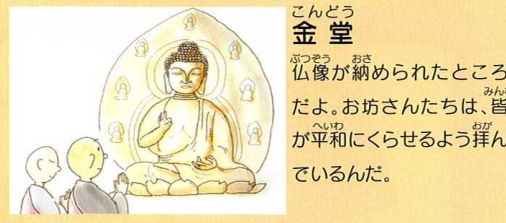 こんどう
金堂
ぶつぞう おさ
仏像が納められたところ
みん
だよ。お坊さんたちは、皆
へいわ おが
が平和にくらせるよう拝ん
でいるんだ。